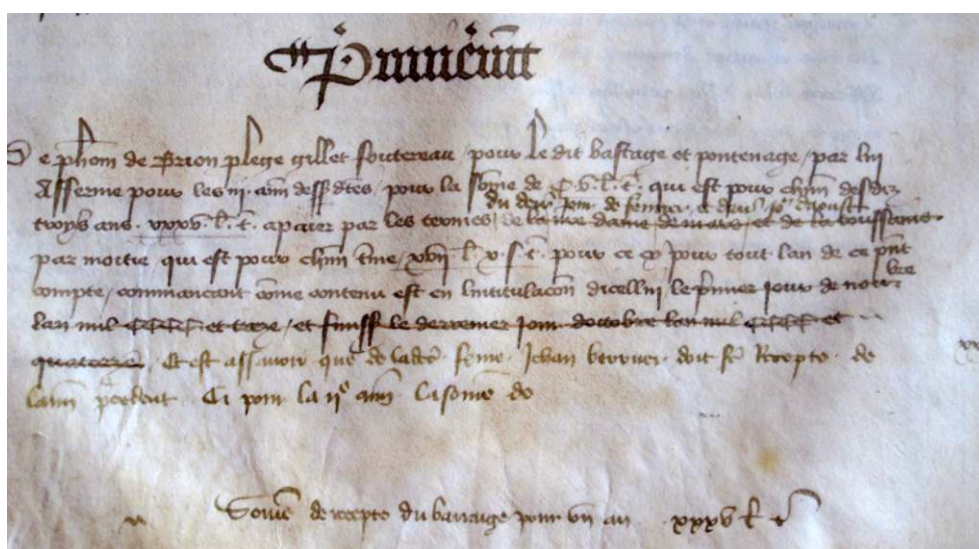 Premierement
De phom de Brion plege gillet soutereau pour le dit bastage et pontenage par lui
Afferme pour les iii ans dessdtes pour la some de C.V.l.t. qui est pour chun desdiz
du derr jour de fevrier et daoust
troys ans xxxv.l.t. apaier par les termes de la nre dame de mars et de la toussains
par moitie qui est pour chun tme xvii l. x s. t. pour ce pour tout lan de ce pnt
compte commancant come contenu est en lintitulacon dicellui le pmier jour de novembre
lan mil CCCC et treze et finiss le derrenier jour doctobre lan mil CCCC et
quatorze Et est assavoir que de ladte ferme Jehan doit fe Recepte de
lann pcedent Ci pour la iie ann la some de
Some de recepte du barraige pour un an xxxv l t